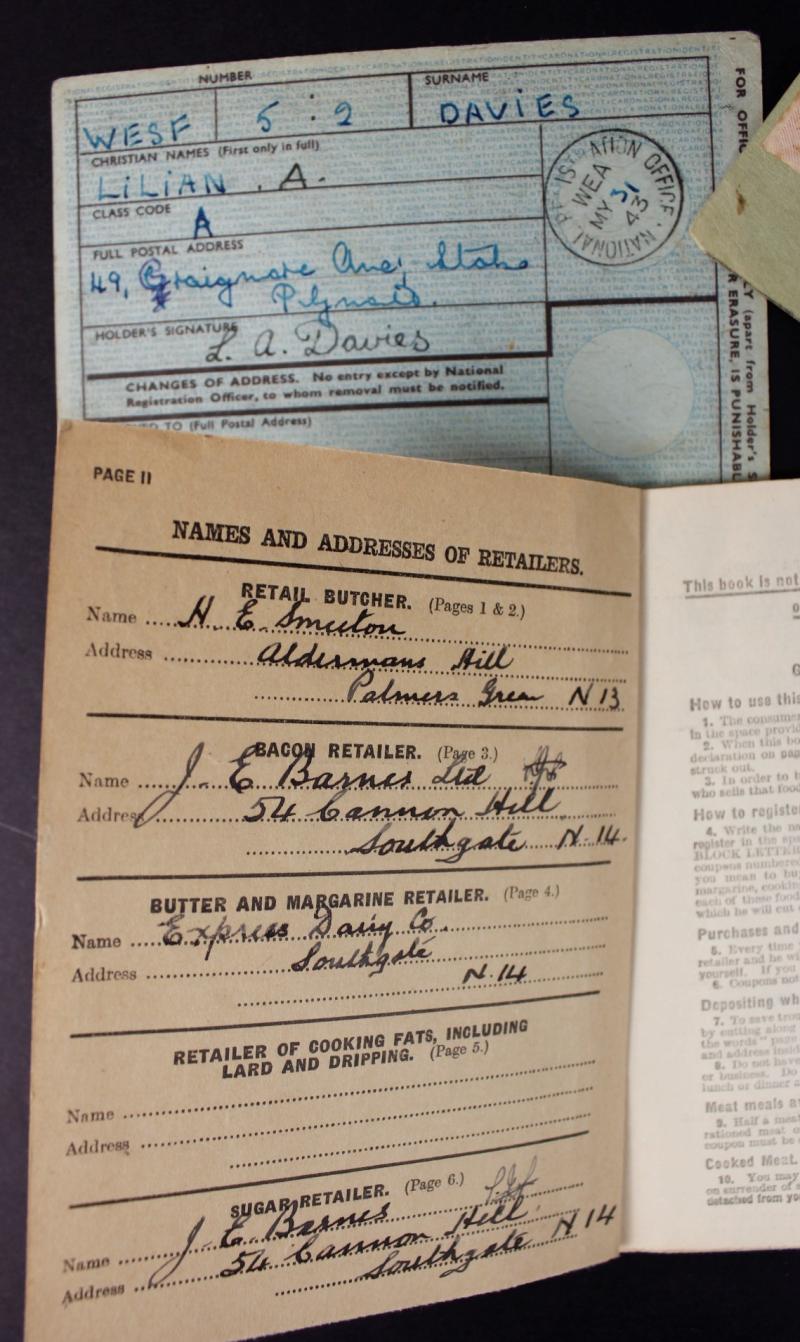 NUMBER
SURNAME
WESF 5 : 2
DAVIES
CHRISTIAN NAMES (First only in full)
LILIAN . A.
CLASS CODE
A
FULL POSTAL ADDRESS
49, Ave, Stoke
HOLDER'S SIGNATURE
L. A. Davies
CHANGES OF ADDRESS. No entry except by National
Registration Officer, to whom removal must be notified.
TO (Full Postal Address)
NATIONAL REGISTRATION OFFICE
WEA
MY 31
43
FOR OFFIC
LY (apart from Holder's S
R ERASURE, IS PUNISHABL
PAGE 11
NAMES AND ADDRESSES OF RETAILERS.
RETAIL BUTCHER. (Pages 1 & 2.)
Name H. E Smeeton
Address Aldermans Hill
Palmers Green N 13
BACON RETAILER. (Page 3.)
Name J. E Barnes Ltd
Address 54 Cannon Hill
Southgate N. 14.
BUTTER AND MARGARINE RETAILER. (Page 4.)
Name Express Dairy Co.
Address Southgate
N. 14
RETAILER OF COOKING FATS, INCLUDING
LARD AND DRIPPING. (Page 5.)
Name
Address
SUGAR RETAILER. (Page 6.)
Name J. E. Barnes
Address 54 Cannon Hill
Southgate N 14
This book is not
How to use this
1. The consumer
in the space provid
2. When this bo
declaration on pag
struck out.
3. In order to b
who sells that food
How to register
4. Write the na
register in the spa
BLOCK LETTER
coupons numbered
you mean to buy
margarine, cookin
each of these food
which he will cut
Purchases and
5. Every time
retailer and he wi
yourself. If you
6. Coupons not
Depositing wh
7. To save trou
by cutting along
the words "page
and address insid
8. Do not have
or business. Do
lunch or dinner a
Meat meals a
9. Half a meat
rationed meat o
coupon must be
Cooked Meat.
10. You may
on surrender of s
detached from yo